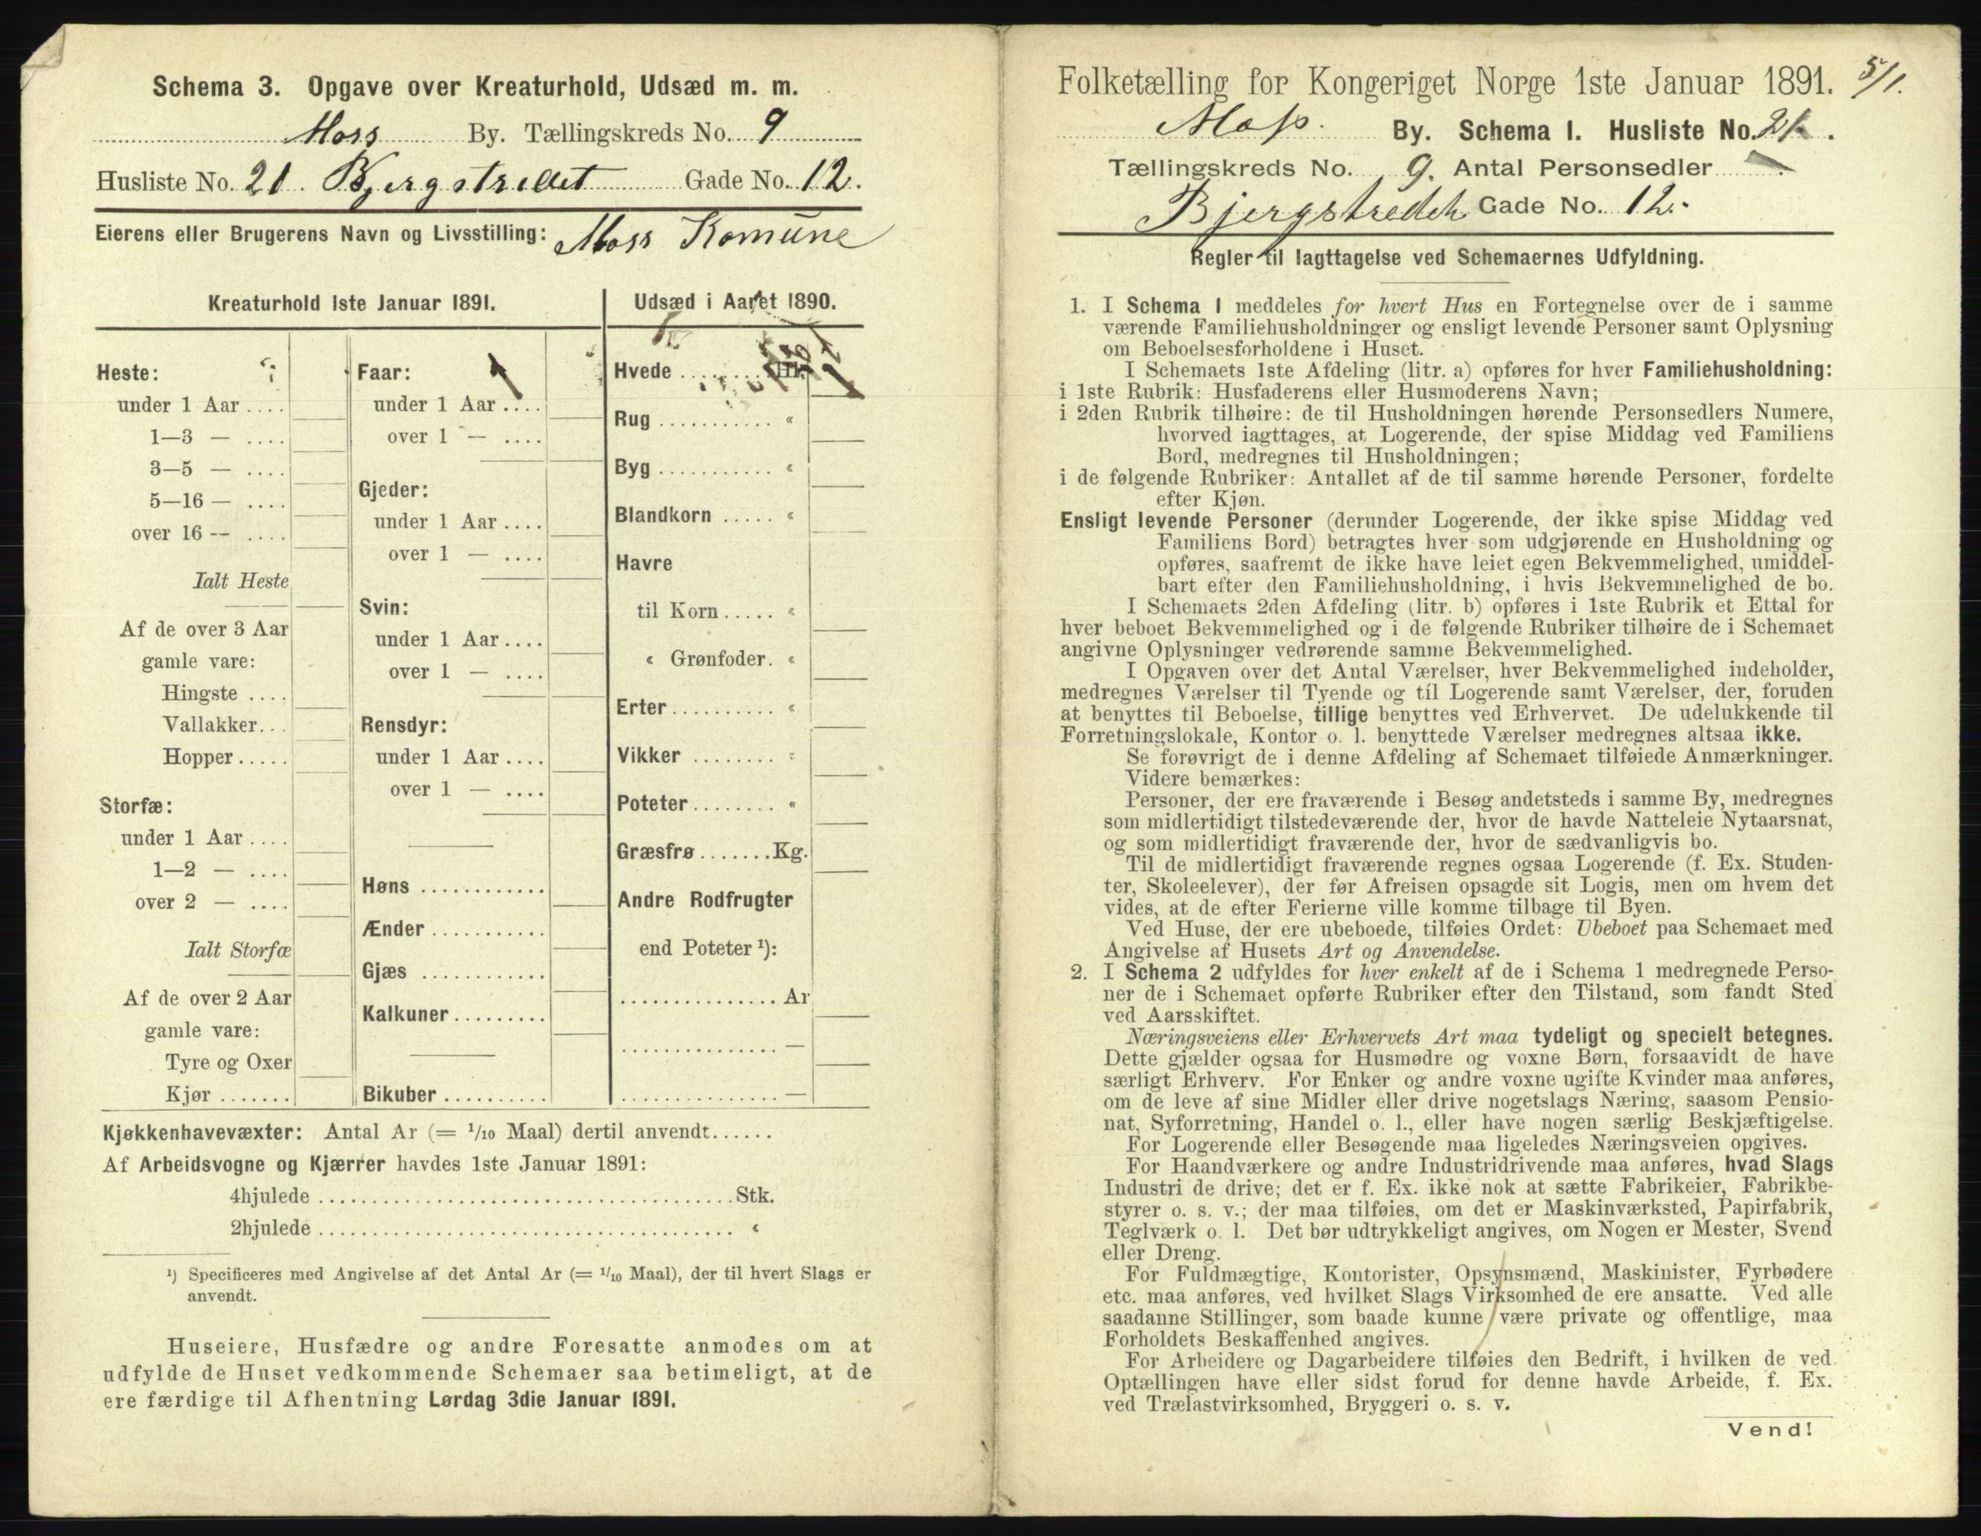 Schema 3. Opgave over Kreaturhold, Udsæd m. m.
Moss By. Tællingskreds No. 9
Husliste No. 21. Bjergstrædet Gade No. 12.
Eierens eller Brugerens Navn og Livsstilling: Moss Komune
Kreaturhold 1ste Januar 1891.
Heste:
under 1 Aar ....
1—3 — ....
3—5 — ....
5—16 — ....
over 16 — ....
Ialt Heste
Af de over 3 Aar
gamle vare:
Hingste ....
Vallakker...
Hopper.....
Storfæ:
under 1 Aar ....
1—2 — ....
over 2 — ....
Ialt Storfæ
Af de over 2 Aar
gamle vare:
Tyre og Oxer
Kjør .......
Faar:
under 1 Aar ....
over 1 — ....
Gjeder:
under 1 Aar ....
over 1 — ....
Svin:
under 1 Aar ....
over 1 — ....
Rensdyr:
under 1 Aar ....
over 1 — ....
Høns ............
Ænder ...........
Gjæs ............
Kalkuner.........
Bikuber ..........
Udsæd i Aaret 1890.
Hvede ......... Hl.
Rug ........... «
Byg ........... «
Blandkorn ..... «
Havre
til Korn ..... «
« Grønfoder. «
Erter.......... «
Vikker ........ «
Poteter........ «
Græsfrø.......Kg.
Andre Rodfrugter
end Poteter ¹):
............... Ar
............... —
............... —
Kjøkkenhavevæxter: Antal Ar (= 1/10 Maal) dertil anvendt......
Af Arbeidsvogne og Kjærrer havdes 1ste Januar 1891:
4hjulede ....................................Stk.
2hjulede .................................... «
¹) Specificeres med Angivelse af det Antal Ar (= 1/10 Maal), der til hvert Slags er
anvendt.
Huseiere, Husfædre og andre Foresatte anmodes om at
udfylde de Huset vedkommende Schemaer saa betimeligt, at de
ere færdige til Afhentning Lørdag 3die Januar 1891.
Folketælling for Kongeriget Norge 1ste Januar 1891. 5/1.
Moss. By. Schema 1. Husliste No. 21.
Tællingskreds No. 9. Antal Personsedler
Bjergstrædet Gade No. 12.
Regler til Iagttagelse ved Schemaernes Udfyldning.
1. I Schema 1 meddeles for hvert Hus en Fortegnelse over de i samme
værende Familiehusholdninger og ensligt levende Personer samt Oplysning
om Beboelsesforholdene i Huset.
I Schemaets 1ste Afdeling (litr. a) opføres for hver Familiehusholdning:
i 1ste Rubrik: Husfaderens eller Husmoderens Navn;
i 2den Rubrik tilhøire: de til Husholdningen hørende Personsedlers Numere,
hvorved iagttages, at Logerende, der spise Middag ved Familiens
Bord, medregnes til Husholdningen;
i de følgende Rubriker: Antallet af de til samme hørende Personer, fordelte
efter Kjøn.
Ensligt levende Personer (derunder Logerende, der ikke spise Middag ved
Familiens Bord) betragtes hver som udgjørende en Husholdning og
opføres, saafremt de ikke have leiet egen Bekvemmelighed, umiddel-
bart efter den Familiehusholdning, i hvis Bekvemmelighed de bo.
I Schemaets 2den Afdeling (litr. b) opføres i 1ste Rubrik et Ettal for
hver beboet Bekvemmelighed og i de følgende Rubriker tilhøire de i Schemaet
angivne Oplysninger vedrørende samme Bekvemmelighed.
I Opgaven over det Antal Værelser, hver Bekvemmelighed indeholder,
medregnes Værelser til Tyende og til Logerende samt Værelser, der, foruden
at benyttes til Beboelse, tillige benyttes ved Erhvervet. De udelukkende til
Forretningslokale, Kontor o. l. benyttede Værelser medregnes altsaa ikke.
Se forøvrigt de i denne Afdeling af Schemaet tilføiede Anmærkninger.
Videre bemærkes:
Personer, der ere fraværende i Besøg andetsteds i samme By, medregnes
som midlertidigt tilstedeværende der, hvor de havde Natteleie Nytaarsnat,
og som midlertidigt fraværende der, hvor de sædvanligvis bo.
Til de midlertidigt fraværende regnes ogsaa Logerende (f. Ex. Studen-
ter, Skoleelever), der før Afreisen opsagde sit Logis, men om hvem det
vides, at de efter Ferierne ville komme tilbage til Byen.
Ved Huse, der ere ubeboede, tilføies Ordet: Ubeboet paa Schemaet med
Angivelse af Husets Art og Anvendelse.
2. I Schema 2 udfyldes for hver enkelt af de i Schema 1 medregnede Perso-
ner de i Schemaet opførte Rubriker efter den Tilstand, som fandt Sted
ved Aarsskiftet.
Næringsveiens eller Erhvervets Art maa tydeligt og specielt betegnes.
Dette gjælder ogsaa for Husmødre og voxne Børn, forsaavidt de have
særligt Erhverv. For Enker og andre voxne ugifte Kvinder maa anføres,
om de leve af sine Midler eller drive nogetslags Næring, saasom Pensio-
nat, Syforretning, Handel o. l., eller have nogen særlig Beskjæftigelse.
For Logerende eller Besøgende maa ligeledes Næringsveien opgives.
For Haandværkere og andre Industridrivende maa anføres, hvad Slags
Industri de drive; det er f. Ex. ikke nok at sætte Fabrikeier, Fabrikbe-
styrer o. s. v.; der maa tilføies, om det er Maskinværksted, Papirfabrik,
Teglværk o. l. Det bør udtrykkeligt angives, om Nogen er Mester, Svend
eller Dreng.
For Fuldmægtige, Kontorister, Opsynsmænd, Maskinister, Fyrbødere
etc. maa anføres, ved hvilket Slags Virksomhed de ere ansatte. Ved alle
saadanne Stillinger, som baade kunne være private og offentlige, maa
Forholdets Beskaffenhed angives.
For Arbeidere og Dagarbeidere tilføies den Bedrift, i hvilken de ved
Optællingen have eller sidst forud for denne havde Arbeide, f. Ex.
ved Trælastvirksomhed, Bryggeri o. s. v.
Vend!